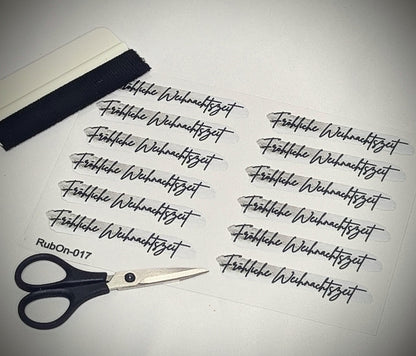 Fröhliche Weihnachtszeit
Fröhliche Weihnachtszeit
Fröhliche Weihnachtszeit
Fröhliche Weihnachtszeit
Fröhliche Weihnachtszeit
Fröhliche Weihnachtszeit
RubOn-017
Fröhliche Weihnachtszeit
Fröhliche Weihnachtszeit
Fröhliche Weihnachtszeit
Fröhliche Weihnachtszeit
Fröhliche Weihnachtszeit
Fröhliche Weihnachtszeit